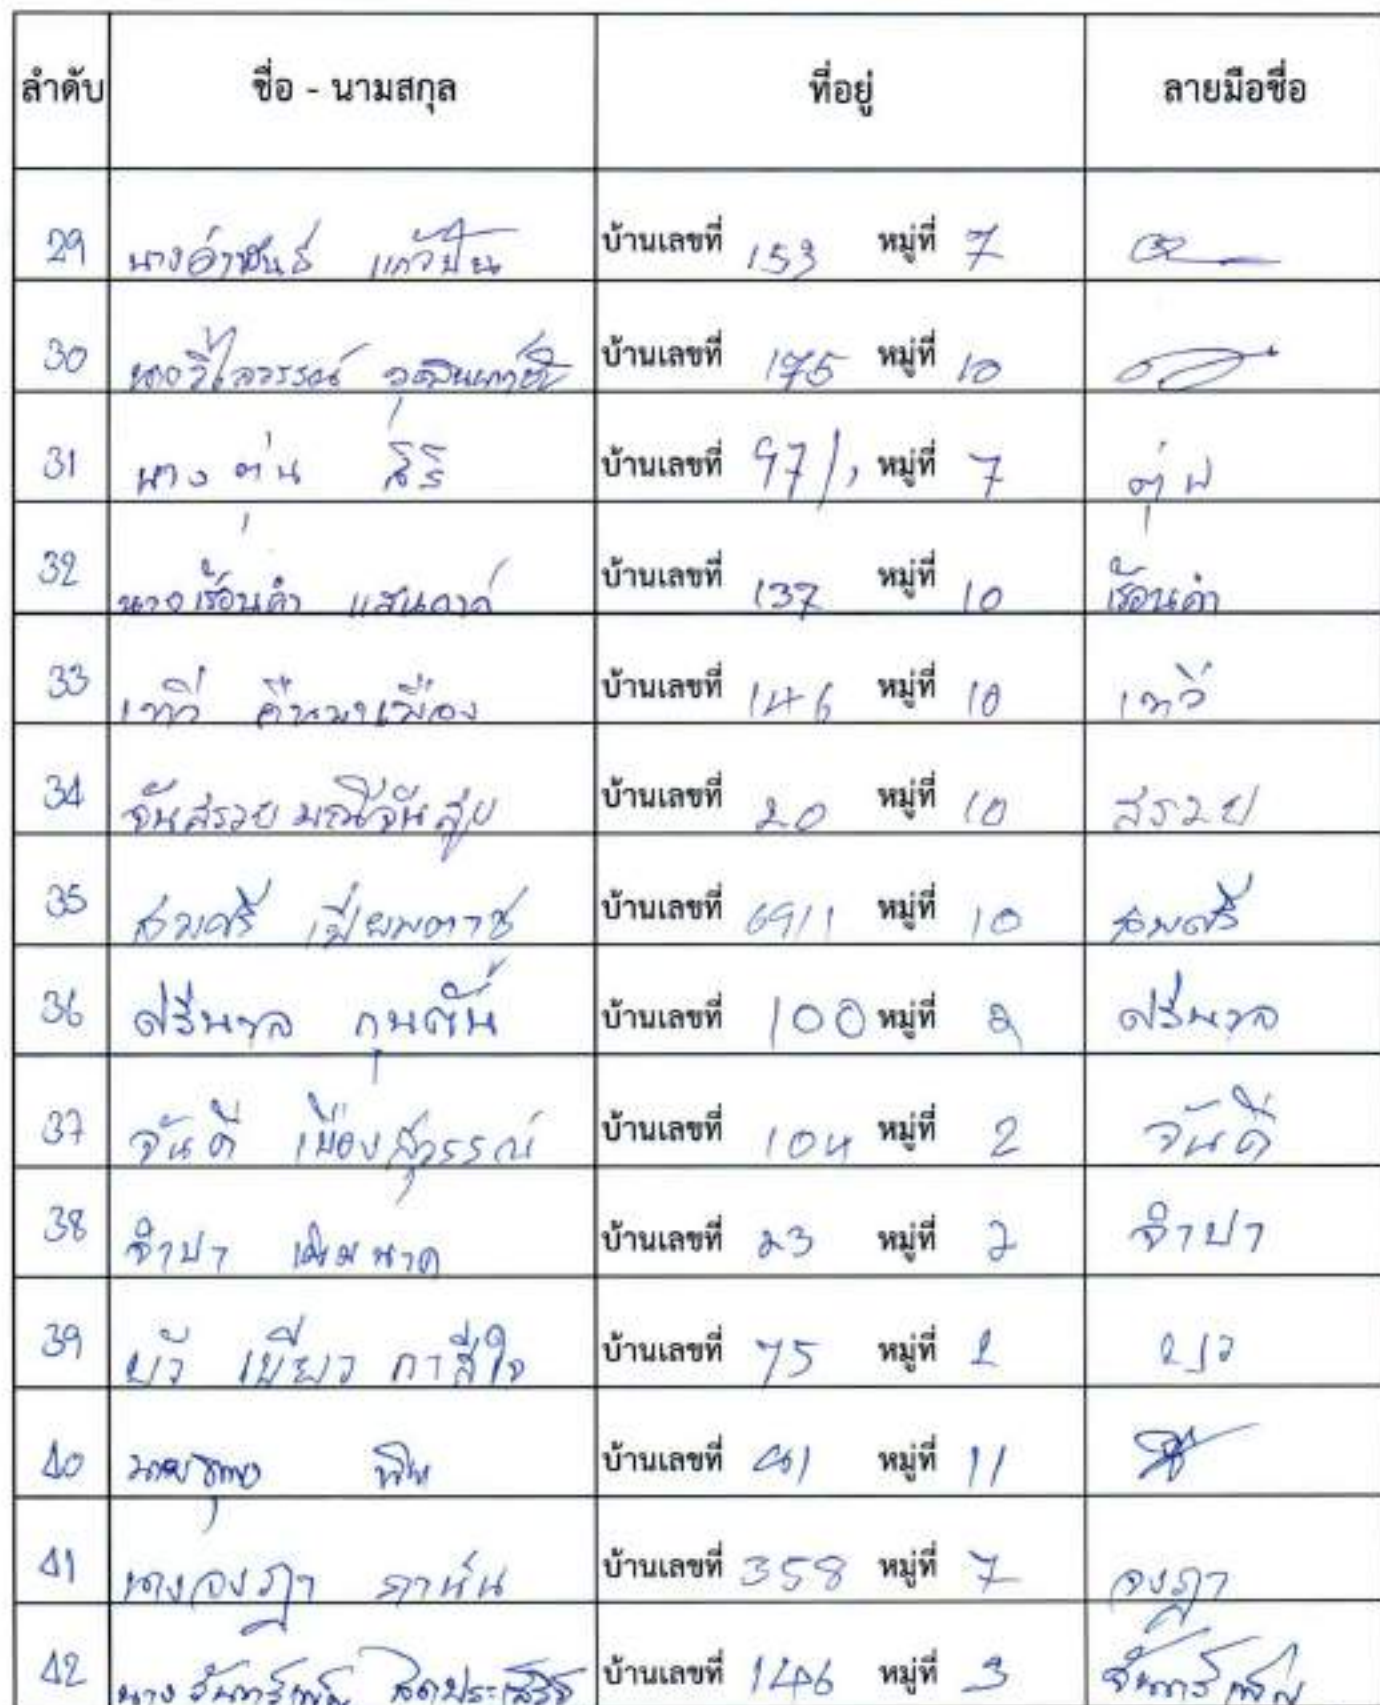 ลำดับ ชื่อ - นามสกุล ที่อยู่ ลายมือชื่อ
29 นางอำพันธ์ แก้วปัน บ้านเลขที่ 153 หมู่ที่ 7
30 นางวิไลวรรณ์ บ้านเลขที่ 175 หมู่ที่ 10
31 นาง ตุ่น สิริ บ้านเลขที่ 97/1 หมู่ที่ 7 ตุ่น
32 นางเรือนคำ บ้านเลขที่ 137 หมู่ที่ 10 เรือนคำ
33 เทวี บ้านเลขที่ 146 หมู่ที่ 10 เทวี
34 จันสรวย มณีจันสุข บ้านเลขที่ 20 หมู่ที่ 10 สรวย
35 สมศรี บ้านเลขที่ 69/1 หมู่ที่ 10 สมศรี
36 ศรีนวล กุนตัน บ้านเลขที่ 100 หมู่ที่ 2 ศรีนวล
37 จันดี เมืองสุวรรณ์ บ้านเลขที่ 104 หมู่ที่ 2 จันดี
38 จำปา บ้านเลขที่ 23 หมู่ที่ 2 จำปา
39 บัว เขียว กาสีใจ บ้านเลขที่ 75 หมู่ที่ 2 บัว
40 บ้านเลขที่ หมู่ที่ 11
41 นางจงฎา บ้านเลขที่ 358 หมู่ที่ 7 จงฎา
42 นางจันทร์เพ็ญ สดประเสริฐ บ้านเลขที่ 146 หมู่ที่ 3 จันทร์เพ็ญ